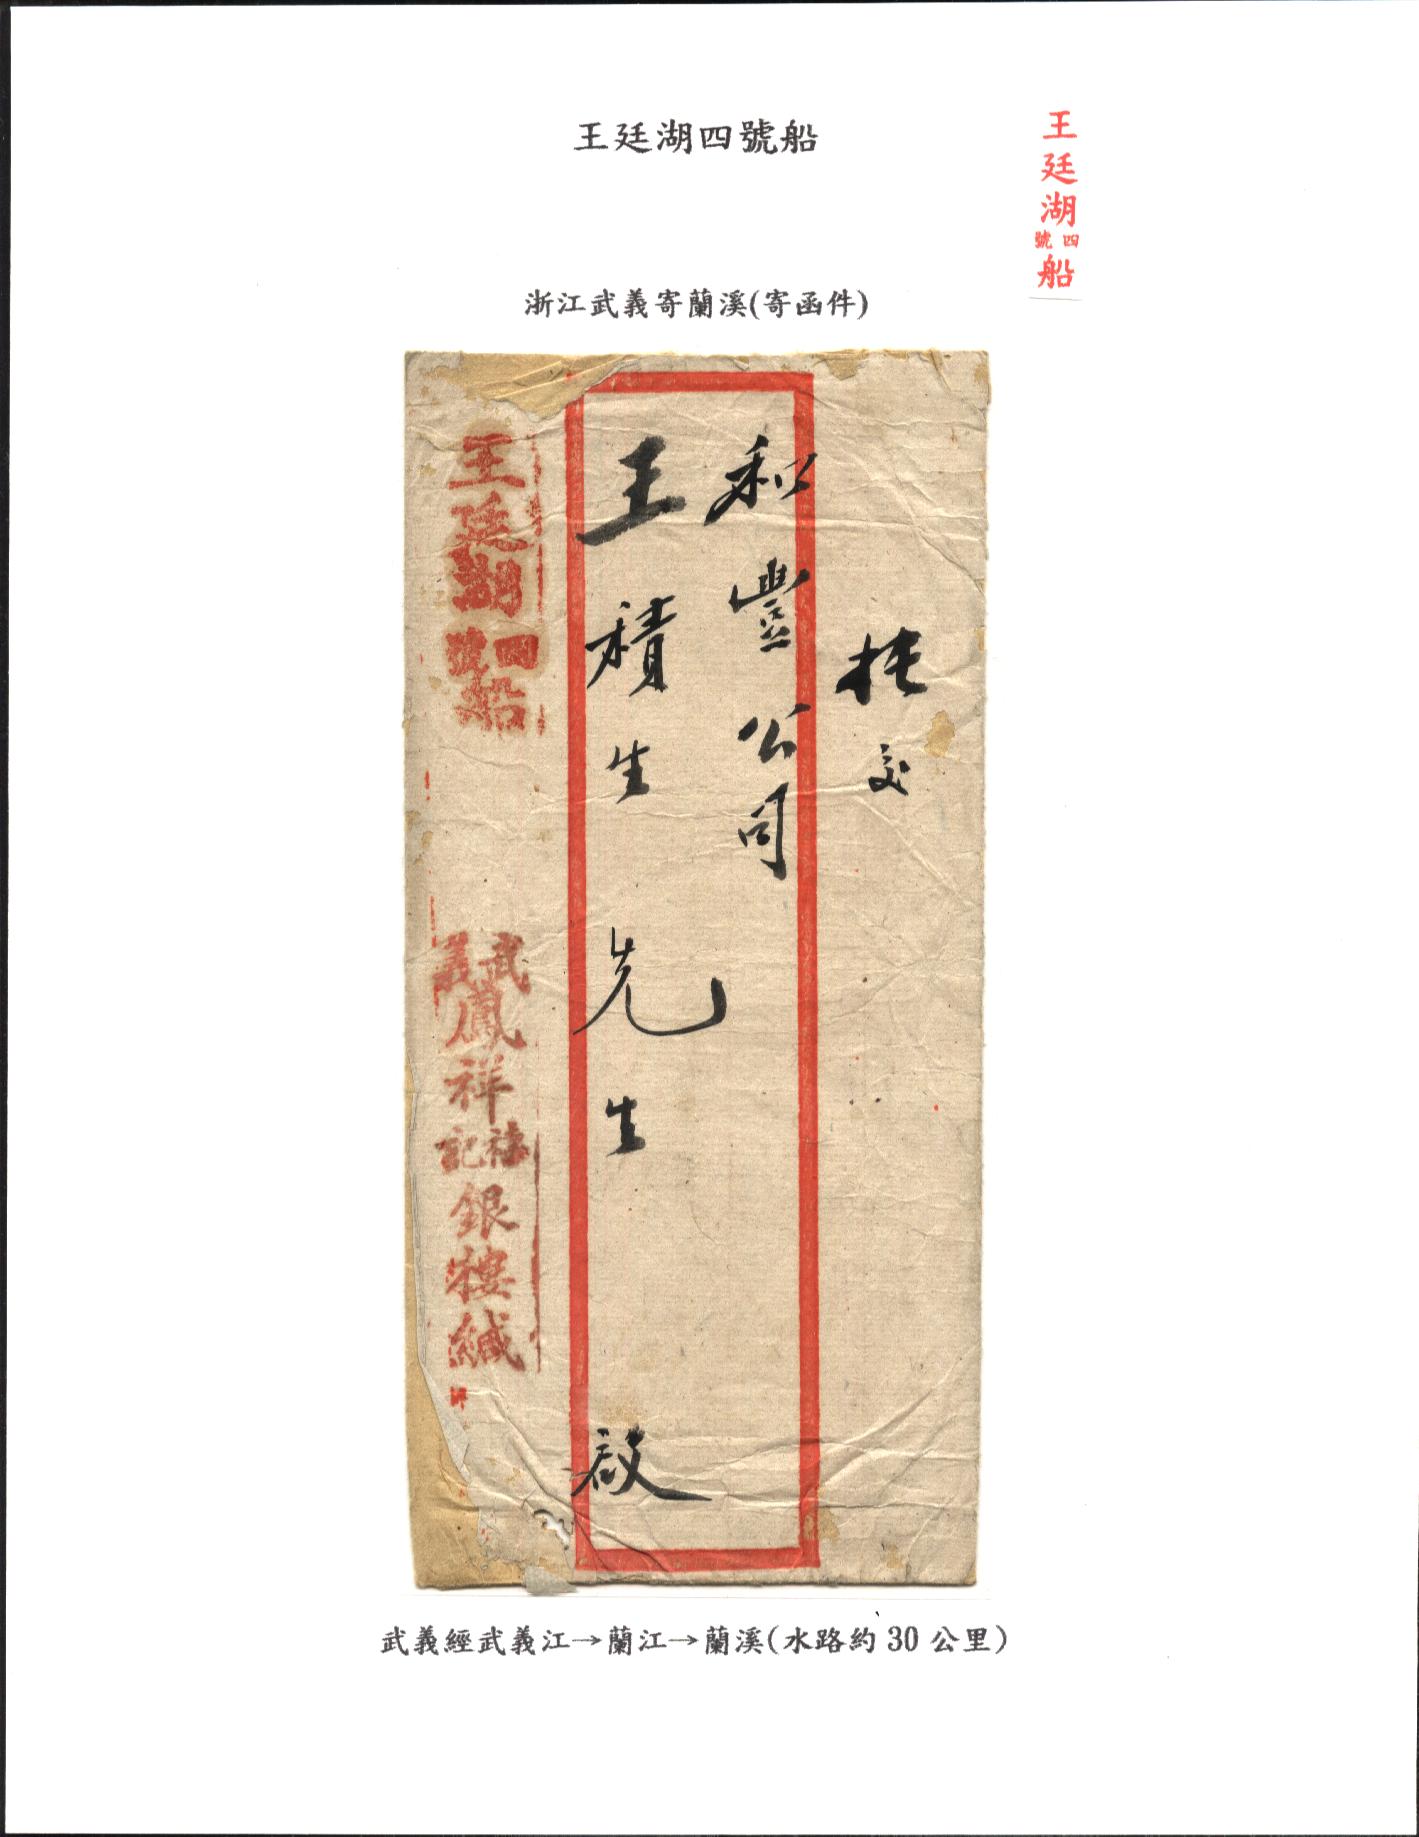 王廷湖四號船
王廷湖四號船
浙江武義寄蘭溪(寄函件)
交
和豐公司
王積生先生 啟
王廷湖四號船
武義鳳祥禧記銀樓緘
武義經武義江→蘭江→蘭溪(水路約30公里)